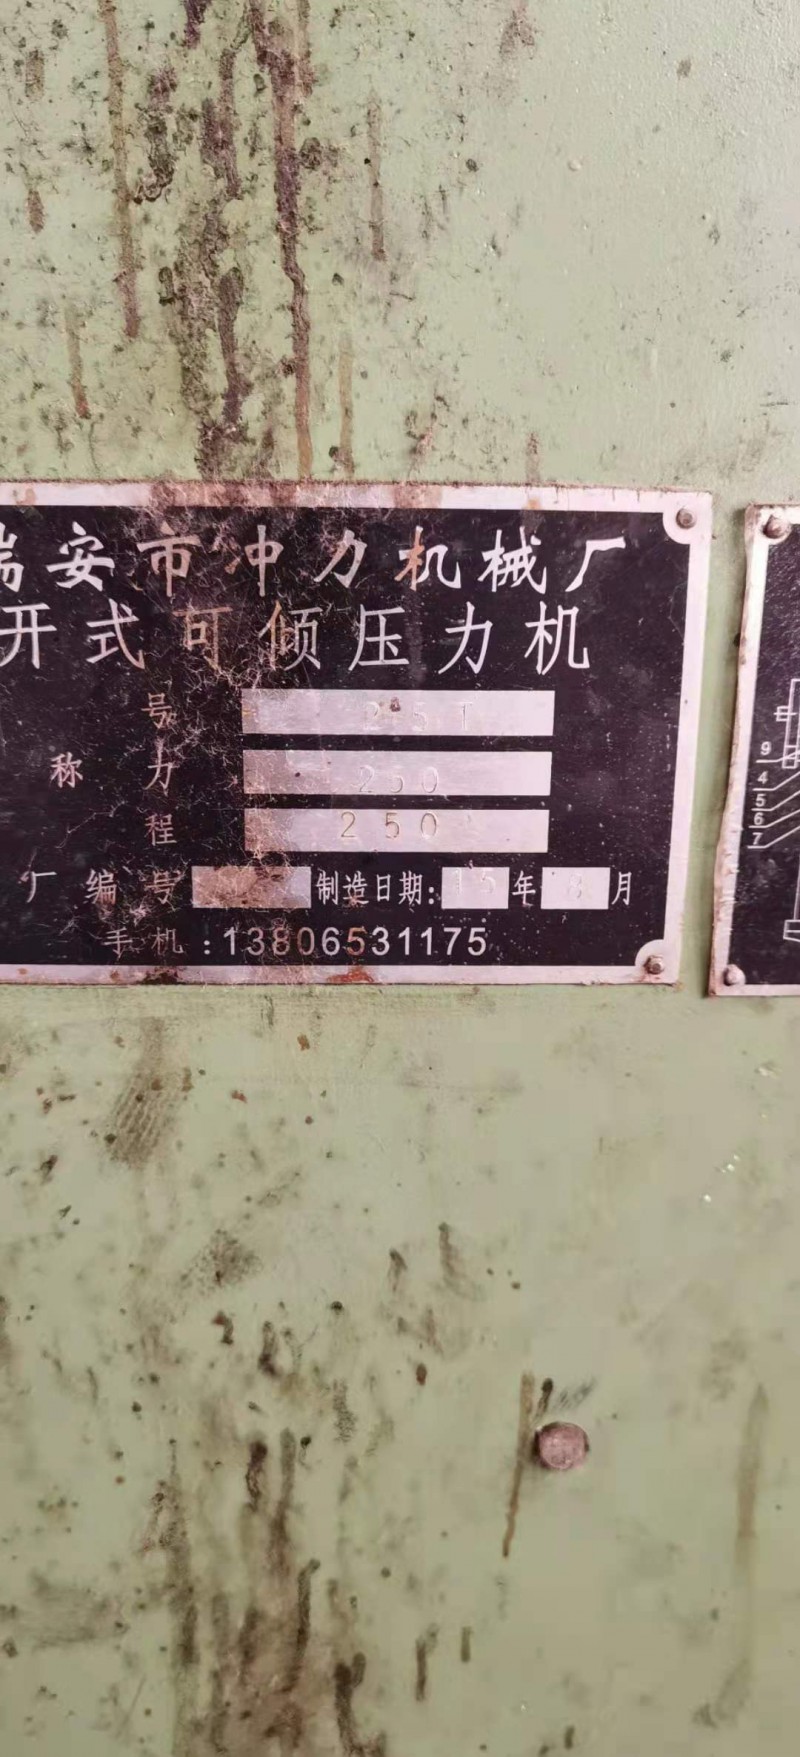 瑞安市冲力机械厂
开式可倾压力机
号 25T
称力 250
程 250
厂编号 制造日期: 15年8月
手机:13806531175
9
4
5
6
7